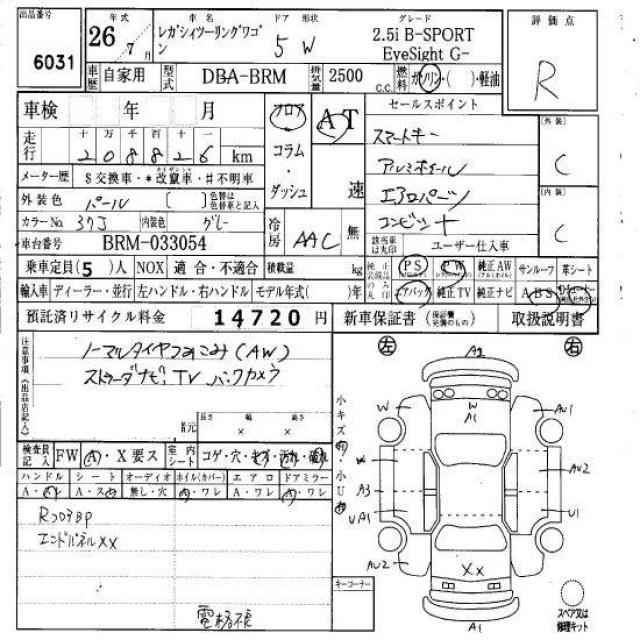 出品番号 6031
年式 26 年 7月
車名 レガシィツーリングワゴン
ドア 形状 5 W
グレード 2.5i B-SPORT EyeSight G-
評価点 R
車歴 自家用
型式 DBA-BRM
排気量 2500 c.c.
燃料 ガソリン・( )・軽油
車検 年 月
フロア コラム・ダッシュ
AT 速
セールスポイント
スマートキー
アルミホイール
エアロパーツ
コンビシート
(外装) C
(内装) C
走行 十 万 千 百 十 一
208826 km
メーター歴 $交換車・*改竄車・#不明車
外装色 パール [ ] 色替は色替車と記入
カラーNo 37J 内装色 グレー
冷房 AAC 無
該当車は丸印 ユーザー仕入車
車台番号 BRM-033054
乗車定員(5)人 NOX 適合・不適合 積載量 kg
純正装備品のみ丸印 PS PW 純正AW サンルーフ 革シート
輸入車 ディーラー・並行 左ハンドル・右ハンドル モデル年式( )年
エアバック 純正TV 純正ナビ ABS
預託済リサイクル料金 14720円
新車保証書 (保証書完備のもの) 取扱説明書
注意事項(出品店記入)
ノーマルタイヤつみこみ(AW)
ストラーダナビ TV バックカメラ
長さ 幅 高さ
× ×
検査員記入 FW A・X要ス 室内シート コゲ・穴・キズ・汚れ・破れ
ハンドル シート オーディオ ホイル(カバー) エアロ ドアミラー
A・ 無し・穴 A・ワレ A・ワレ A・ワレ
RコアサBP
エンドパネルXX
電格
キーコーナー
左 右
A2
W
A1
W
AU1
W
AU2
A3
UA1
U1
AU2
XX
A1
スペア又は修理キット